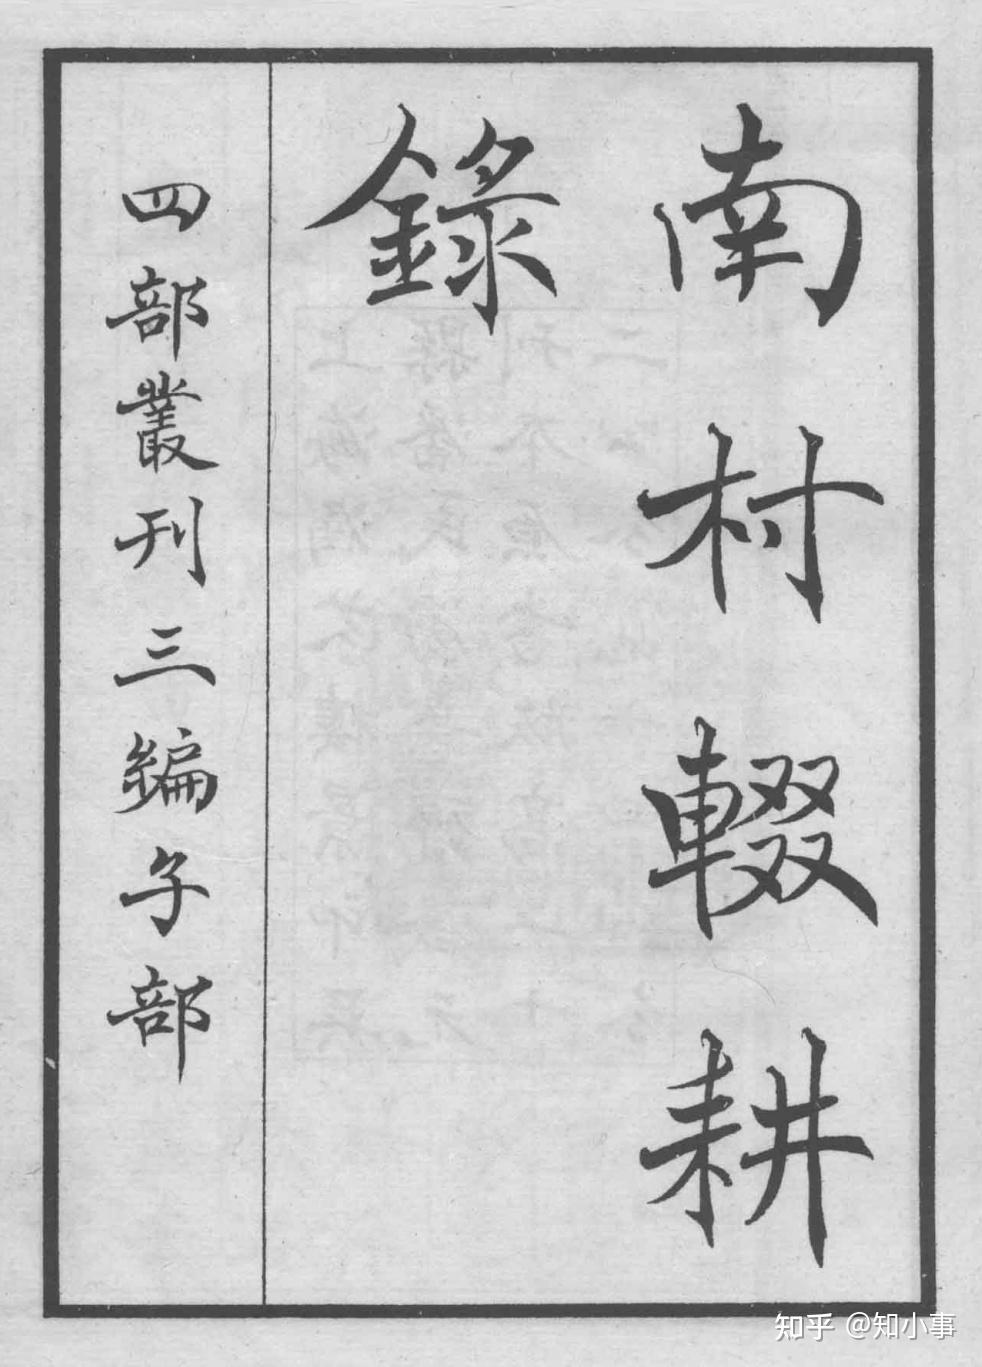 南村輟耕
錄
四部叢刊三編子部
知乎 @知小事